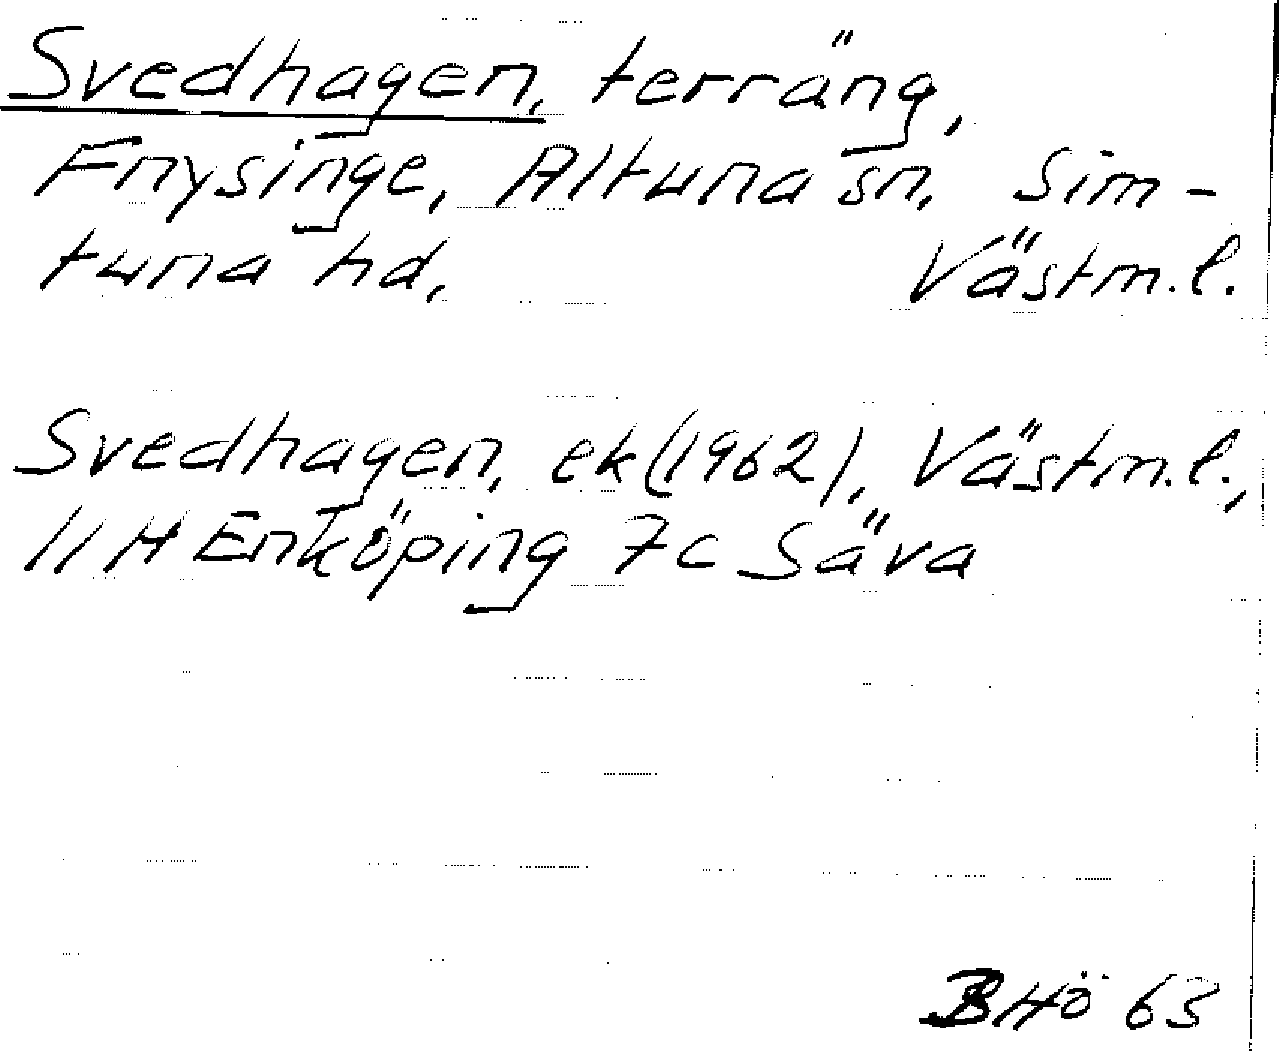 Svedhagen, terräng,
Frysinge, Altuna sn, Sim-
tuna hd, Västm.l.
Svedhagen, ek (1962), Västm.l.,
11H Enköping 7c Säva
BHö 63